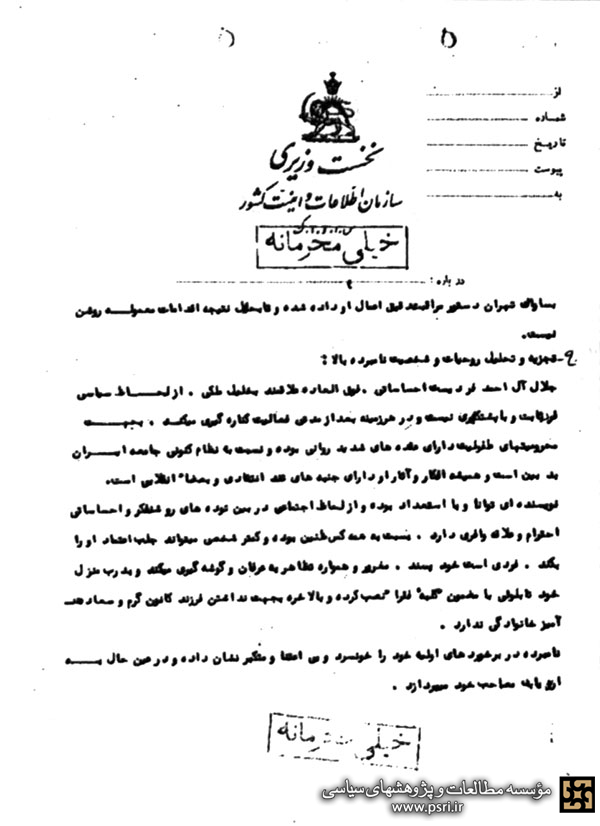 از
شماره
تاریخ
پیوست
به
نخست وزیری
سازمان اطلاعات و امنیت کشور
س.ا.و.ا.ک
خیلی محرمانه
درباره :
بساواک تهران دستور مراقبت دقیق اعمال او داده شده و تابحال نتیجه اقدامات معموله روشن
نیست.
۹- تجزیه و تحلیل روحیات و شخصیت نامبرده بالا :
جلال آل احمد فردیست احساساتی . فوق العاده علاقمند بخلیل ملکی . از لحاظ سیاسی
فرد ثابت و با پشتکاری نیست و در هر زمینه بعد از مدتی فعالیت کناره گیری میکند . بجهت
محرومیتهای طفولیت دارای عقده های شدید روانی بوده و نسبت به نظام کنونی جامعه ایران
بد بین است و همیشه افکار و آثار او دارای جنبه های تند انتقادی و بعضا" انقلابی است.
نویسنده ای توانا و با استعداد بوده و از لحاظ اجتماعی در بین توده های روشنفکر و احساساتی
احترام و علاقه وافری دارد . نسبت به همه کس ظنین بوده و کمتر شخصی میتواند جلب اعتماد او را
بکند . فردی است خود پسند . مغرور و همواره تظاهر به عرفان و گوشه گیری میکند و بدرب منزل
خود تابلوئی با مضمون "کلبه" فقرا نصب کرده و بالاخره بجهت نداشتن فرزند کانون گرم و سعادت
آمیز خانوادگی ندارد .
نامبرده در برخورد های اولیه خود را خونسرد و بی اعتنا و متکبر نشان داده و در عین حال به
ارزیابی مصاحب خود میپردازد .
خیلی محرمانه
مؤسسه مطالعات و پژوهشهای سیاسی
www.psri.ir